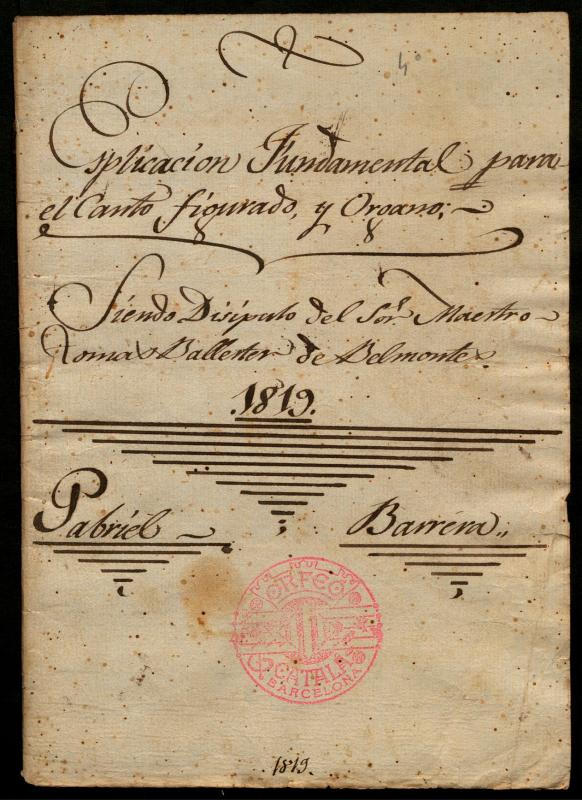 4º
Esplicacion Fundamental para
el Canto figurado, y Organo;
Siendo Disipulo del Sor. Maestro
Tomas Ballester de Belmonte
.1819.
Gabriel Barrera
ORFEÓ
CATALÀ
BARCELONA
1819.